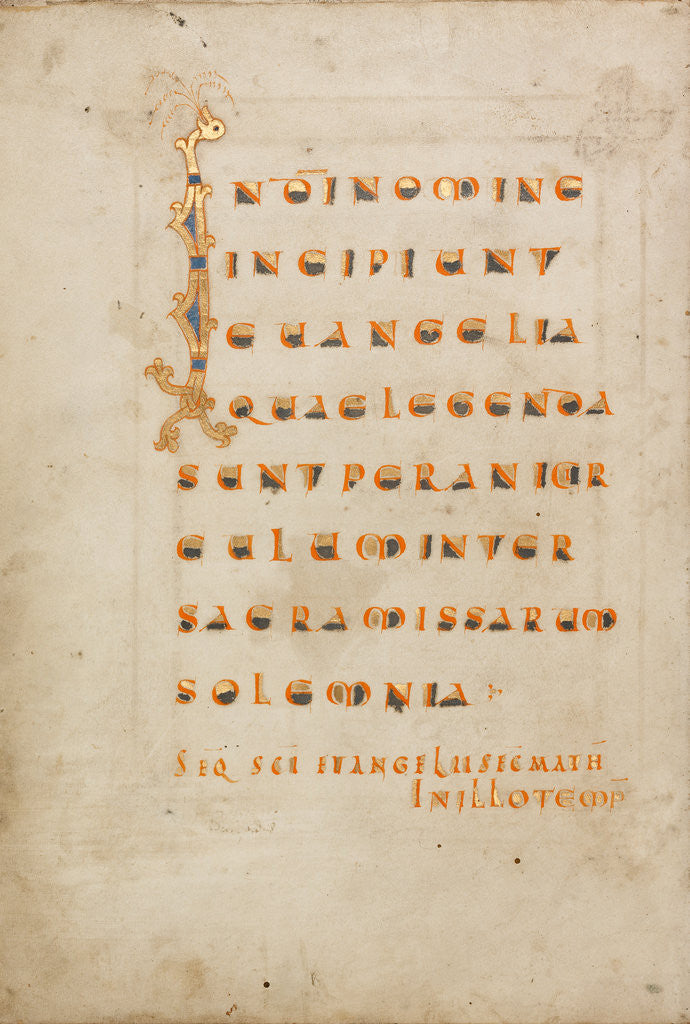 IN D̄I NOMINE
INCIPIUNT
EUANGELIA
QUAE LEGENDA
SUNT PER ANI CIR
CULUM INTER
SACRA MISSARUM
SOLEMNIA
SEQ̄ SC̄I EUANGELII SEC̄ MATH̄
IN ILLO TEMP̄